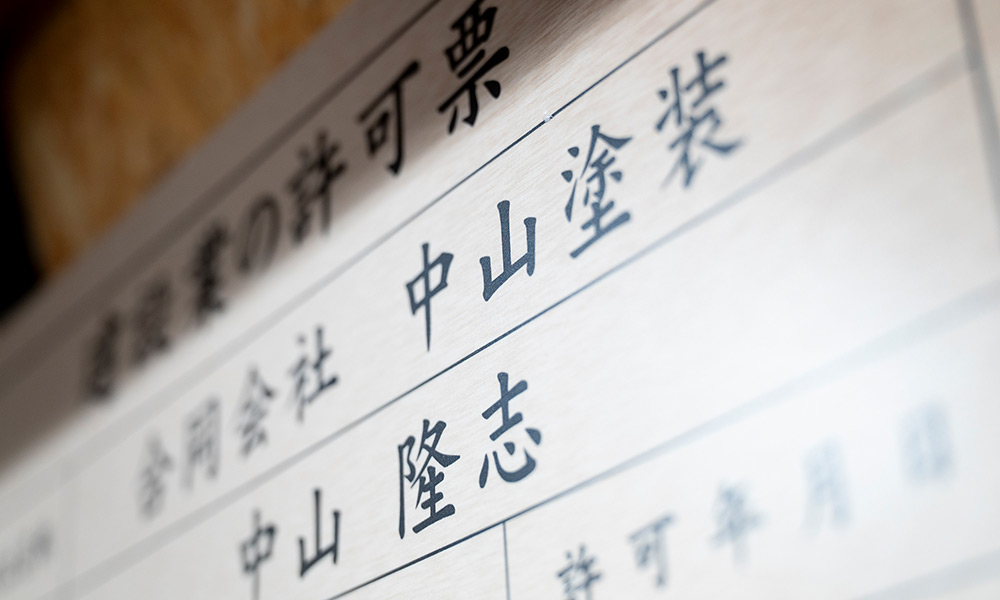 建設業の許可票
合同会社 中山塗装
中山 隆志
許可年月日